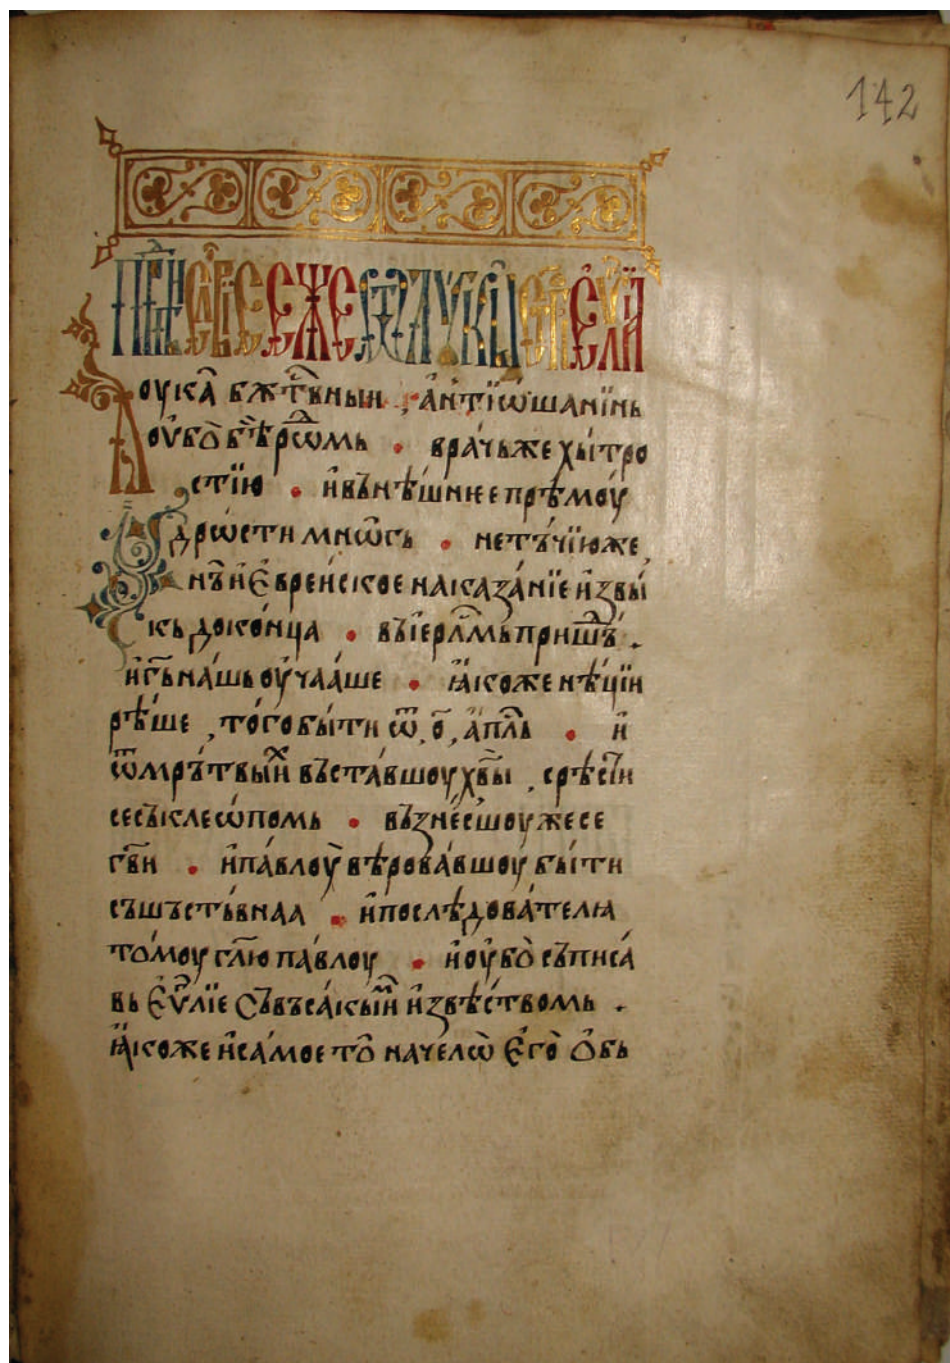 142
Лоука̑ бж҃тв҃ныи , а҆нтїѡ́шанїинь
оу҆бо̀ бѣ̀ рѡ́домь • вра́чьже хы́тро
стїю • и҆вънѣ́шнꙗеепрѣмоу́
дрѡсти мнѡ̑гъ • нетъ́чїюже
нъи҆ Є҆вреи́ское наказа́нїе и҆звы́
къ доко́нца • въі҆ерл҃мь пришь́ .
и҆гь҃ на́шь оу҆чаа́ше • ꙗ҆́коже нѣ́цїи
рѣ́ше , то́гобы́ти ѿ , о҃ , а҆пл҃ь • и҆
ѿмръ́твыи̑х въста́вшоу хв҃ы̀ , срѣ́сти
сесъклеѡ́помь • възне́сшоу жесе
гв҃и • и҆па́влоу̀ вѣрова́вшоу́ бы́ти
съшъсть́внаа • и҆послѣдова́телꙗ
то́моу гл҃ю па́влоу • и҆оу҆бо̀ съписа́
вь Є҆ѵ҃лїе Съвъса́кыи̑м и҆звѣ́ствомь .
ꙗ҆́коже и҆са́мое то̑ начелѡ̀ Є҆го̀ о҆бь